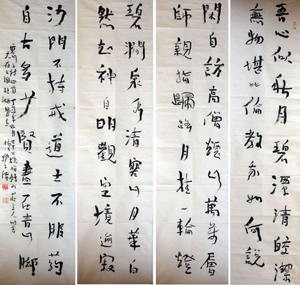 吾心似秋月碧潭清皎潔
無物堪比倫教我如何說
閑自訪高僧煙山萬萬層
師親指歸路月挂一輪燈
碧澗泉水清寒山月華白
默知神自明觀空境逾寂
沙門不持戒道士不服药
自古多少賢盡在青山腳